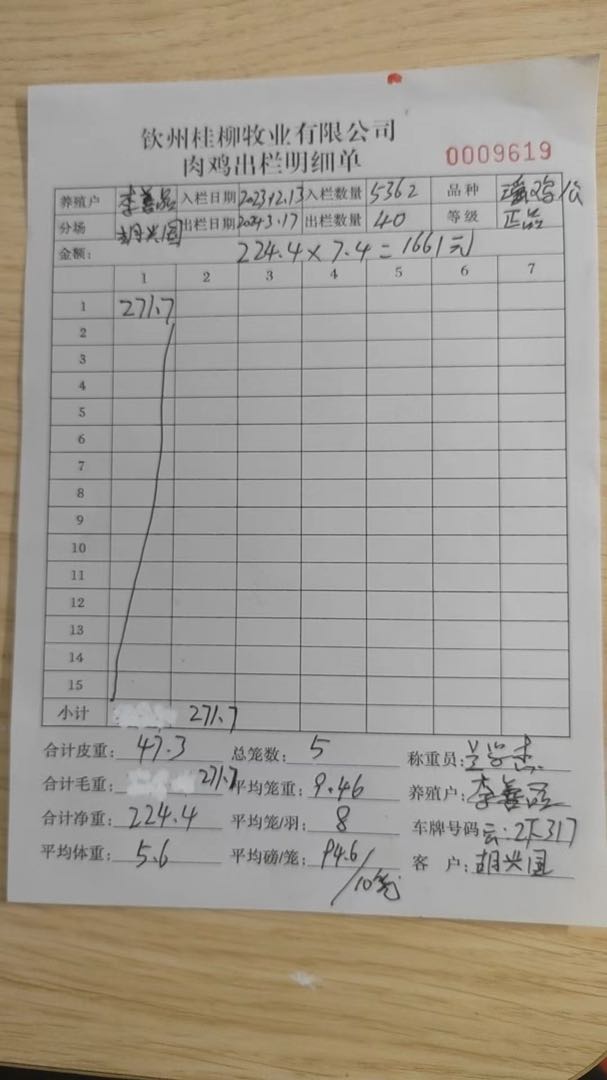 钦州桂柳牧业有限公司
肉鸡出栏明细单
0009619
养殖户 李善品 入栏日期 2023.12.13 入栏数量 5362 品种 鸡公
分场 胡兴国 出栏日期 2024.3.17 出栏数量 40 等级 正品
金额: 224.4×7.4=1661元
1 2 3 4 5 6 7
1 271.7
2
3
4
5
6
7
8
9
10
11
12
13
14
15
小计 271.7
合计皮重: 47.3 总笼数: 5 称重员:
合计毛重: 271.7 平均笼重: 9.46 养殖户: 李善品
合计净重: 224.4 平均笼/羽: 8 车牌号码 云:
平均体重: 5.6 平均磅/笼: 94.6/10笼 客 户: 胡兴国